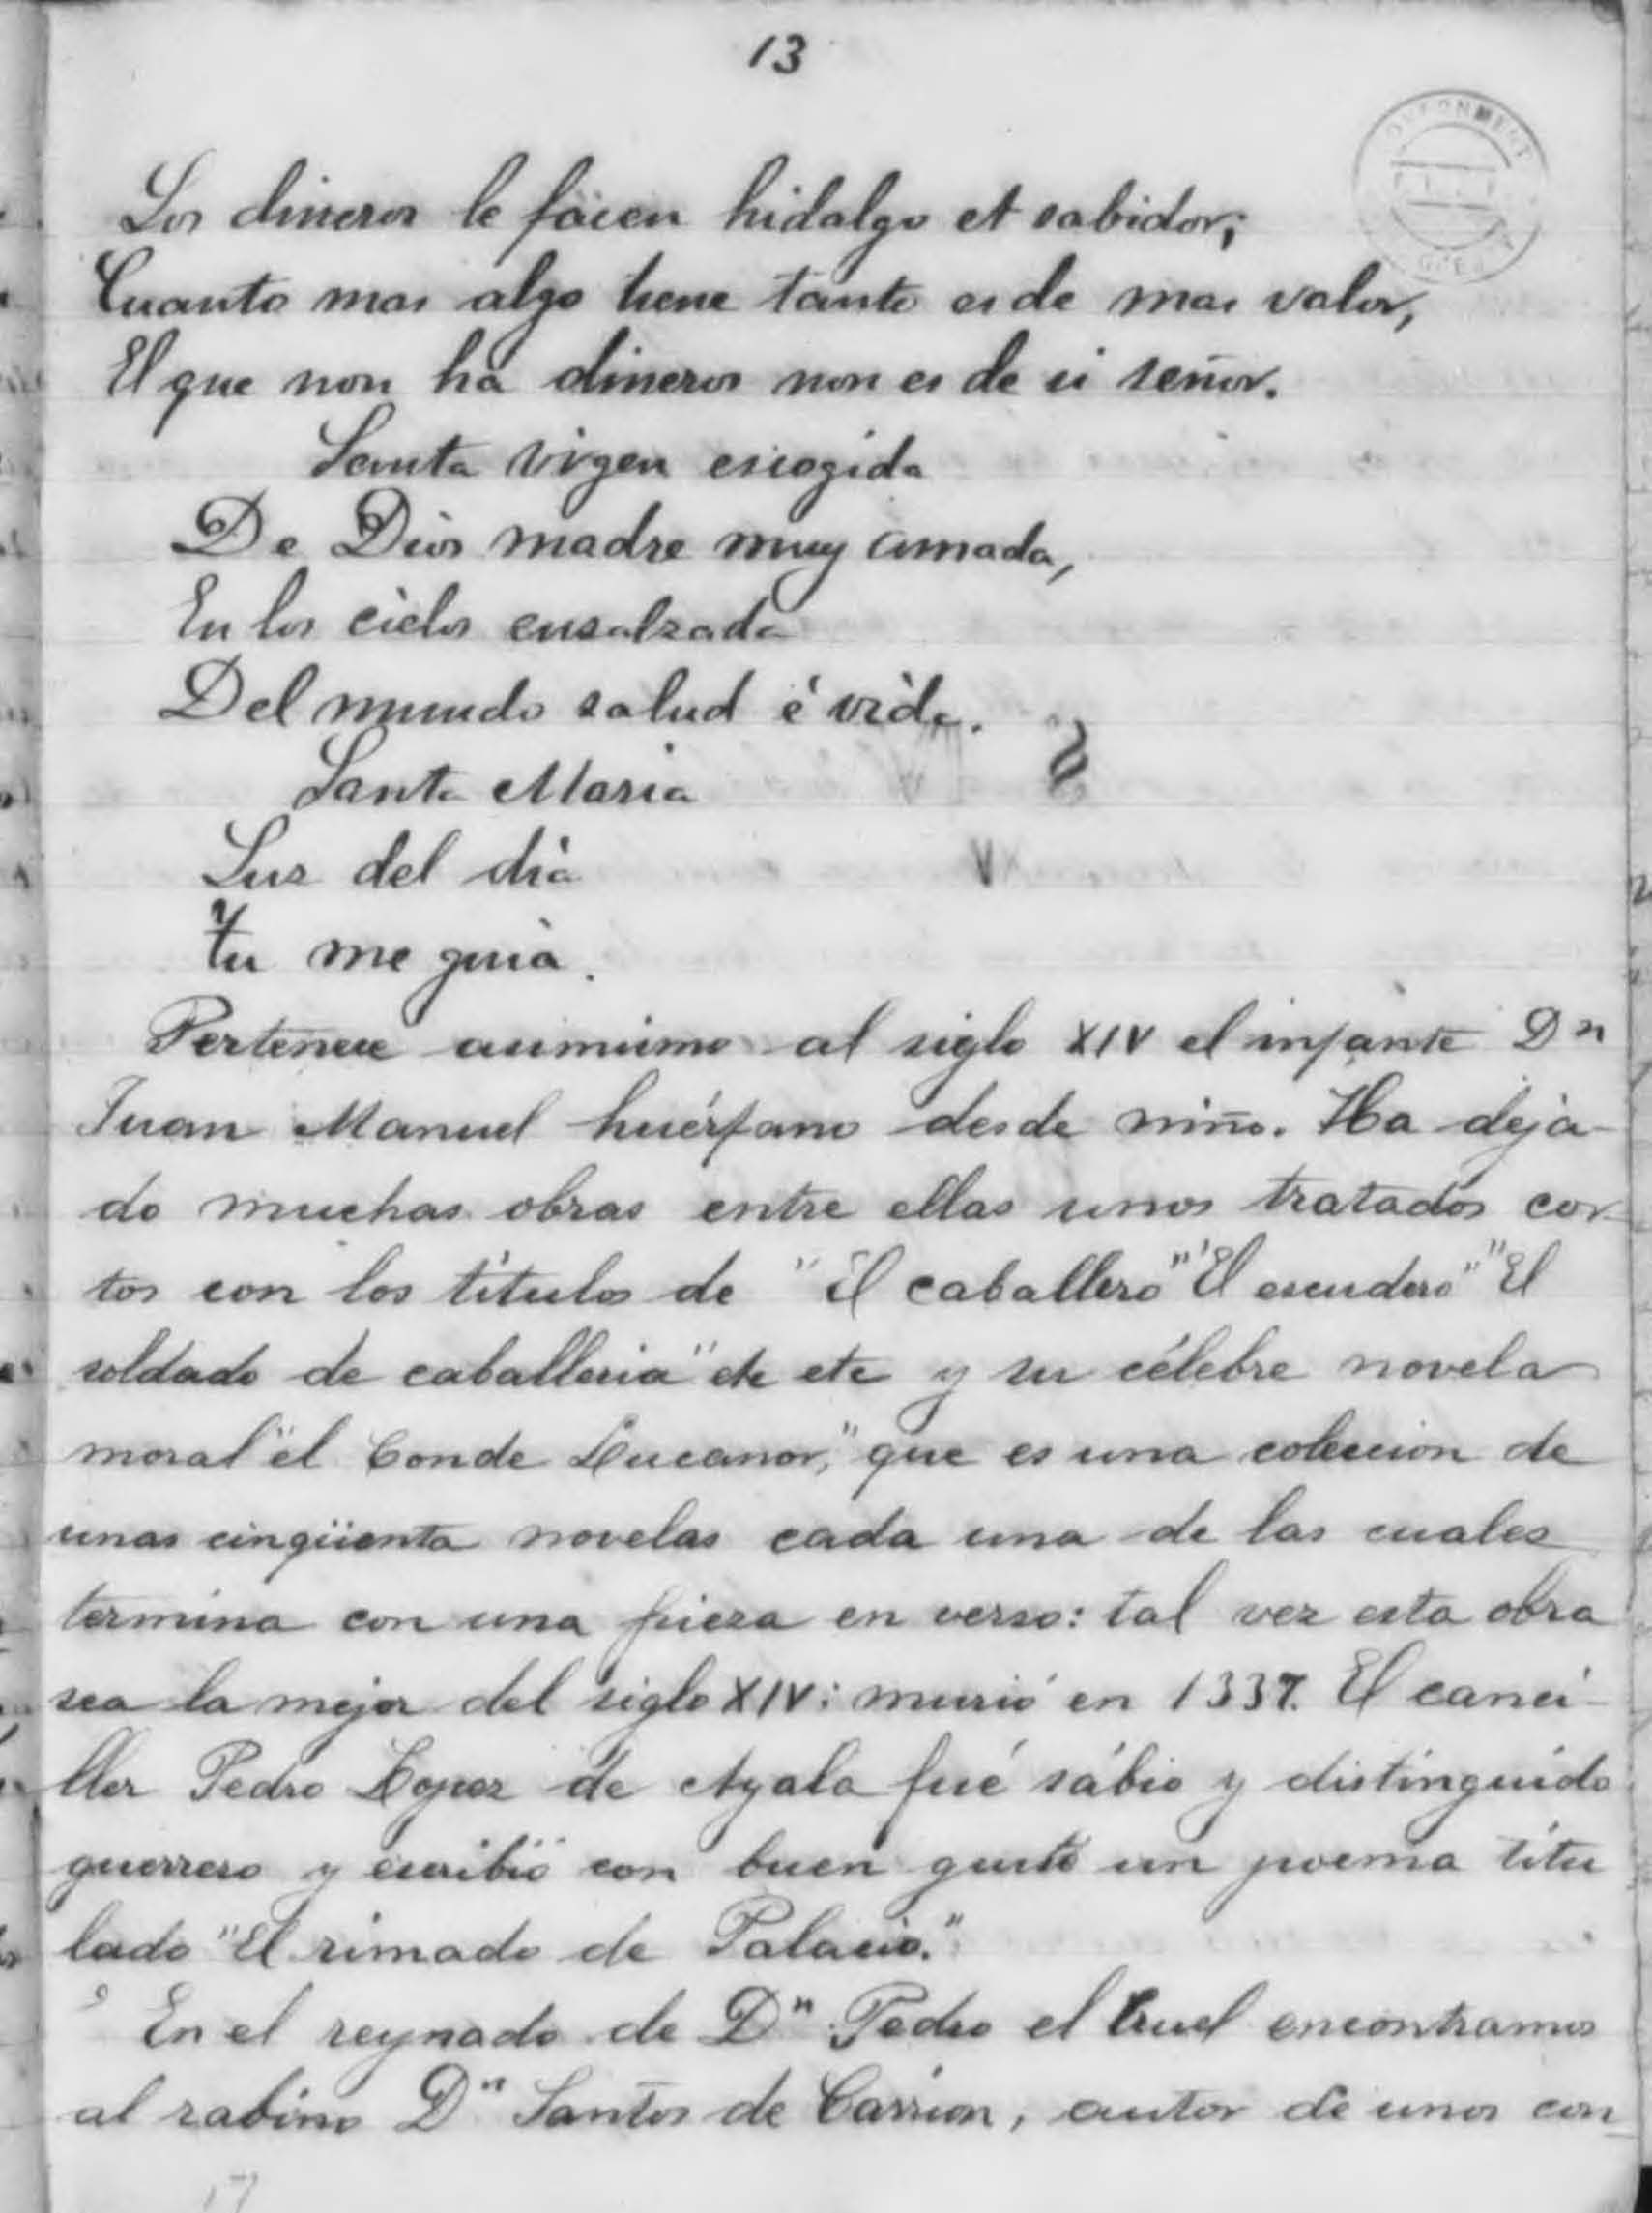 13
Los dineros le facen hidalgo et sabidor;
Cuanto mas algo tiene tanto es de mas valor,
El que non ha dineros non es de si señor.
Santa virgen escogida
De Dios madre muy amada,
En los cielos ensalzada
Del mundo salud é vida.
Santa Maria
Luz del dia
Tu me guia.
Pertenece asimismo al siglo XIV el infante Dn
Juan Manuel huérfano desde niño. Ha deja-
do muchas obras entre ellas unos tratados cor-
tos con los titulos de "El caballero" "El escudero" "El
soldado de caballeria" etc etc y su célebre novela
moral "el Conde Lucanor," que es una coleccion de
unas cinqüenta novelas cada una de las cuales
termina con una pieza en verso: tal vez esta obra
sea la mejor del siglo XIV: murió en 1337. El canci-
ller Pedro Lopez de Ayala fué sábio y distinguido
guerrero y escribió con buen gusto un poema titu
lado "El rimado de Palacio."
En el reynado de Dn Pedro el Cruel encontramos
al rabino Dn Santos de Carrion, autor de unos con
17